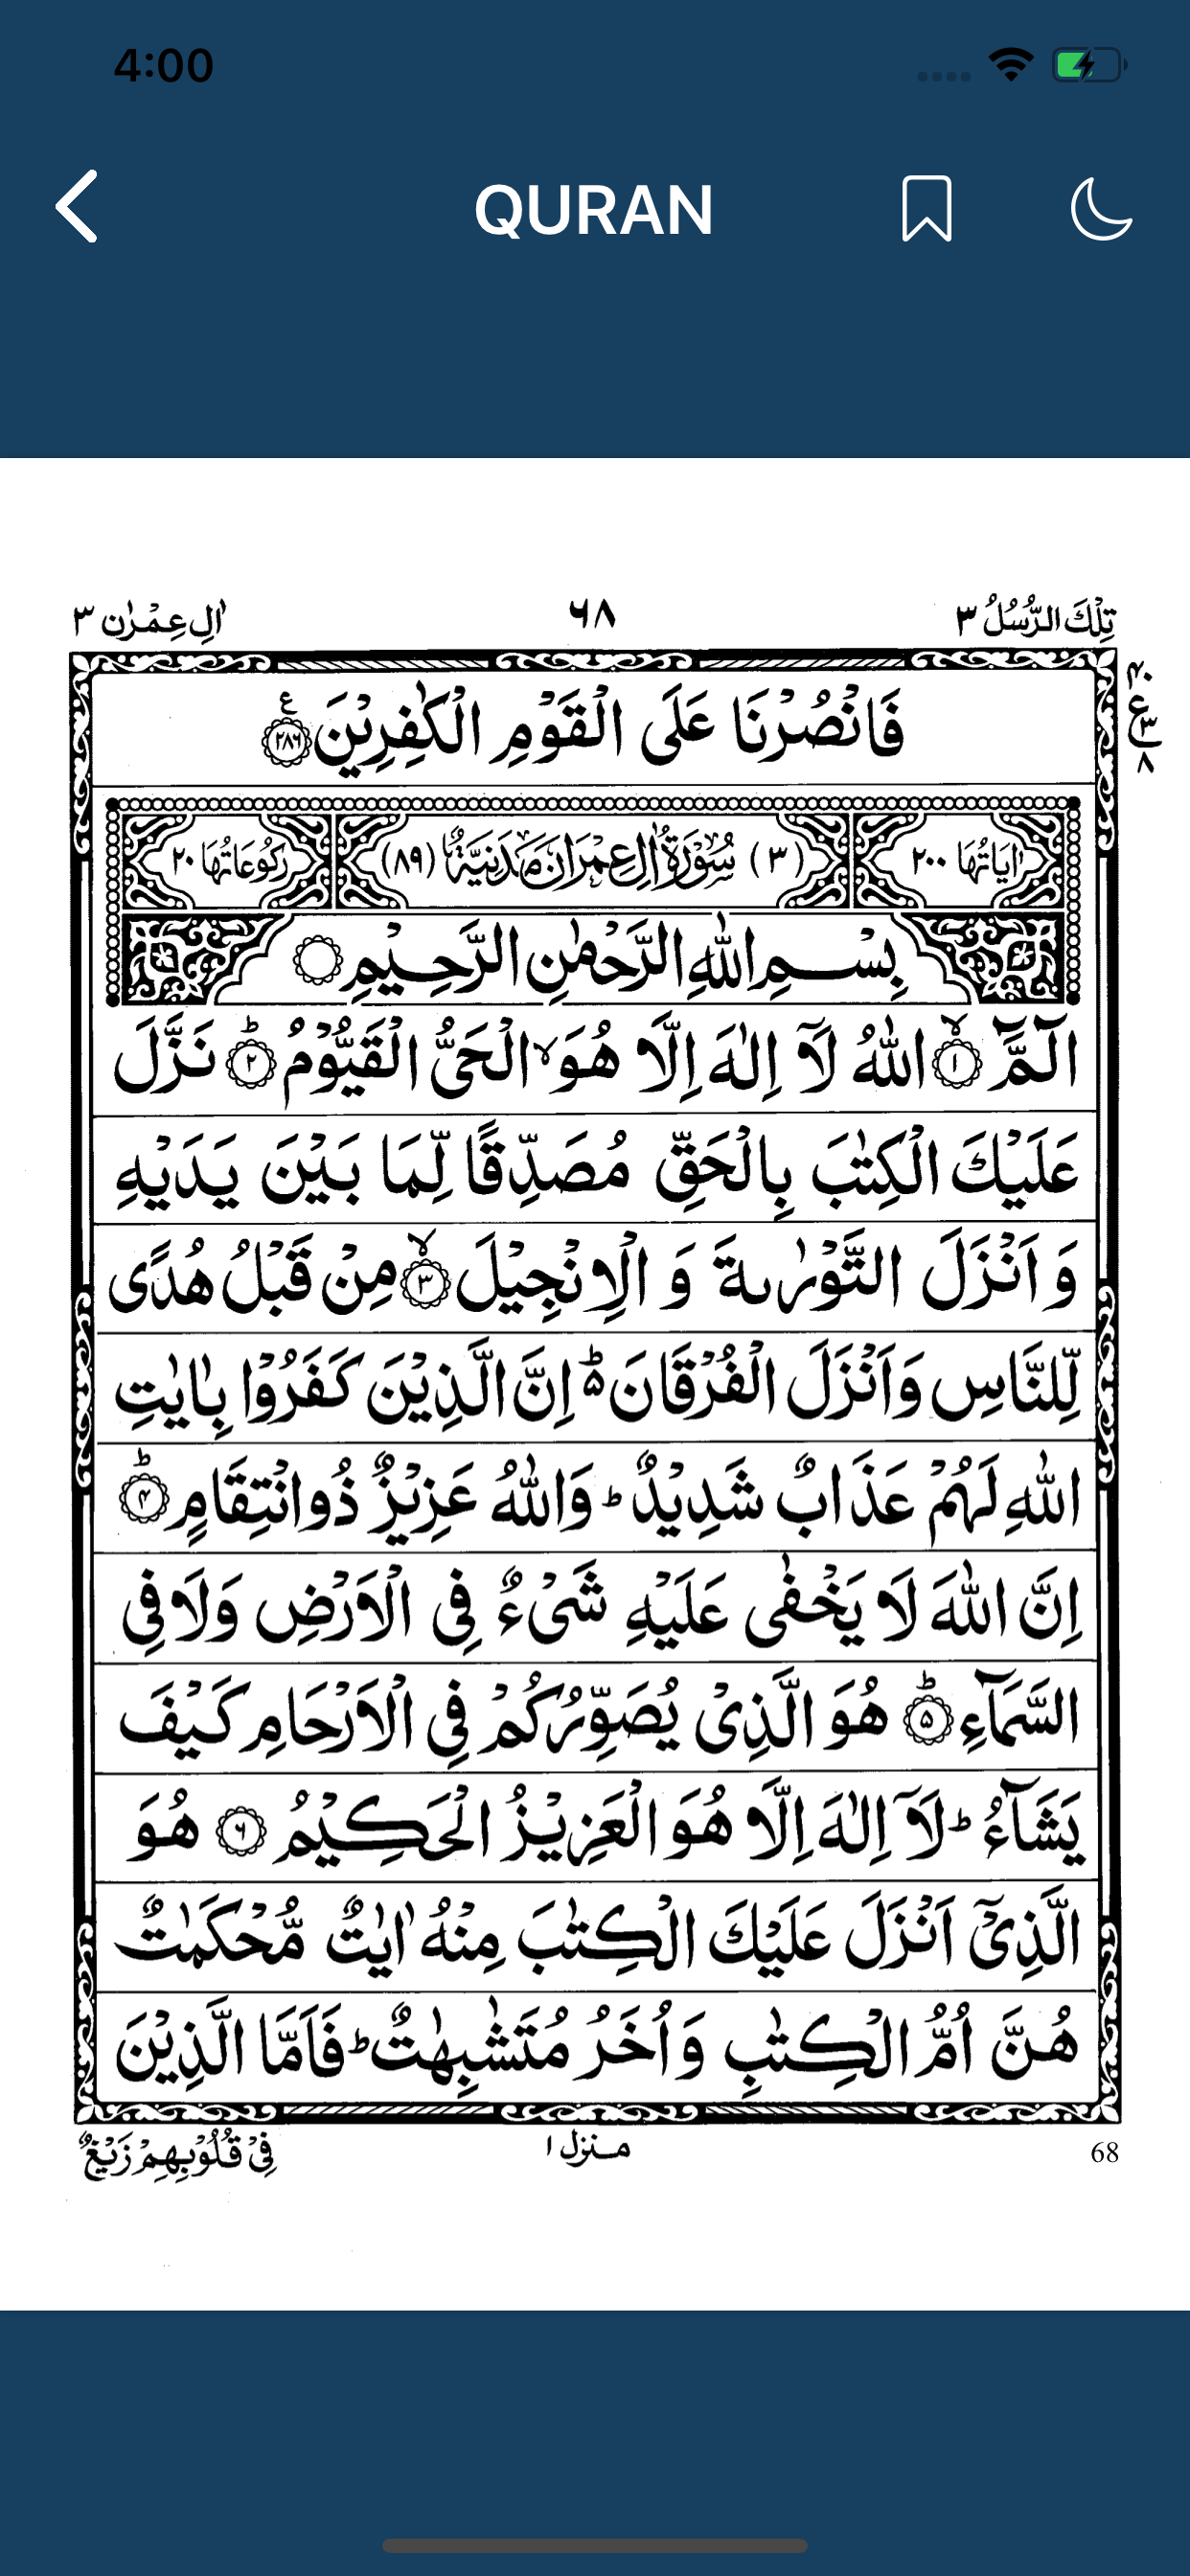 4:00
QURAN
تِلْكَ الرُّسُلُ ٣
٦٨
اٰلِ عِمْرٰن ٣
فَانْصُرْنَا عَلَى الْقَوْمِ الْكٰفِرِيْنَ ٢٨٦ ع
ع
٣
٨
اٰيَاتُهَا ٢٠٠
(٣) سُوْرَةُ اٰلِ عِمْرَانَ مَدَنِيَّةٌ (٨٩)
رُكُوْعَاتُهَا ٢٠
بِسْمِ اللّٰهِ الرَّحْمٰنِ الرَّحِيْمِ
الٓمّٓ ١ۙ اللّٰهُ لَاۤ اِلٰهَ اِلَّا هُوَ ۙ الْحَىُّ الْقَيُّوْمُ ٢ؕ نَزَّلَ
عَلَيْكَ الْكِتٰبَ بِالْحَقِّ مُصَدِّقًا لِّمَا بَيْنَ يَدَيْهِ
وَ اَنْزَلَ التَّوْرٰىةَ وَ الْاِنْجِيْلَ ٣ۙ مِنْ قَبْلُ هُدًى
لِّلنَّاسِ وَاَنْزَلَ الْفُرْقَانَ ؕ۵ اِنَّ الَّذِيْنَ كَفَرُوْا بِاٰيٰتِ
اللّٰهِ لَهُمْ عَذَابٌ شَدِيْدٌ ؕ وَاللّٰهُ عَزِيْزٌ ذُوانْتِقَامٍ ۴ؕ
اِنَّ اللّٰهَ لَا يَخْفٰى عَلَيْهِ شَىْءٌ فِى الْاَرْضِ وَلَا فِى
السَّمَآءِ ۵ؕ هُوَ الَّذِىْ يُصَوِّرُكُمْ فِى الْاَرْحَامِ كَيْفَ
يَشَآءُ ؕ لَاۤ اِلٰهَ اِلَّا هُوَ الْعَزِيْزُ الْحَكِيْمُ ۶ هُوَ
الَّذِىْۤ اَنْزَلَ عَلَيْكَ الْكِتٰبَ مِنْهُ اٰيٰتٌ مُّحْكَمٰتٌ
هُنَّ اُمُّ الْكِتٰبِ وَاُخَرُ مُتَشٰبِهٰتٌ ؕ فَاَمَّا الَّذِيْنَ
68
منزل ١
فِىْ قُلُوْبِهِمْ زَيْغٌ